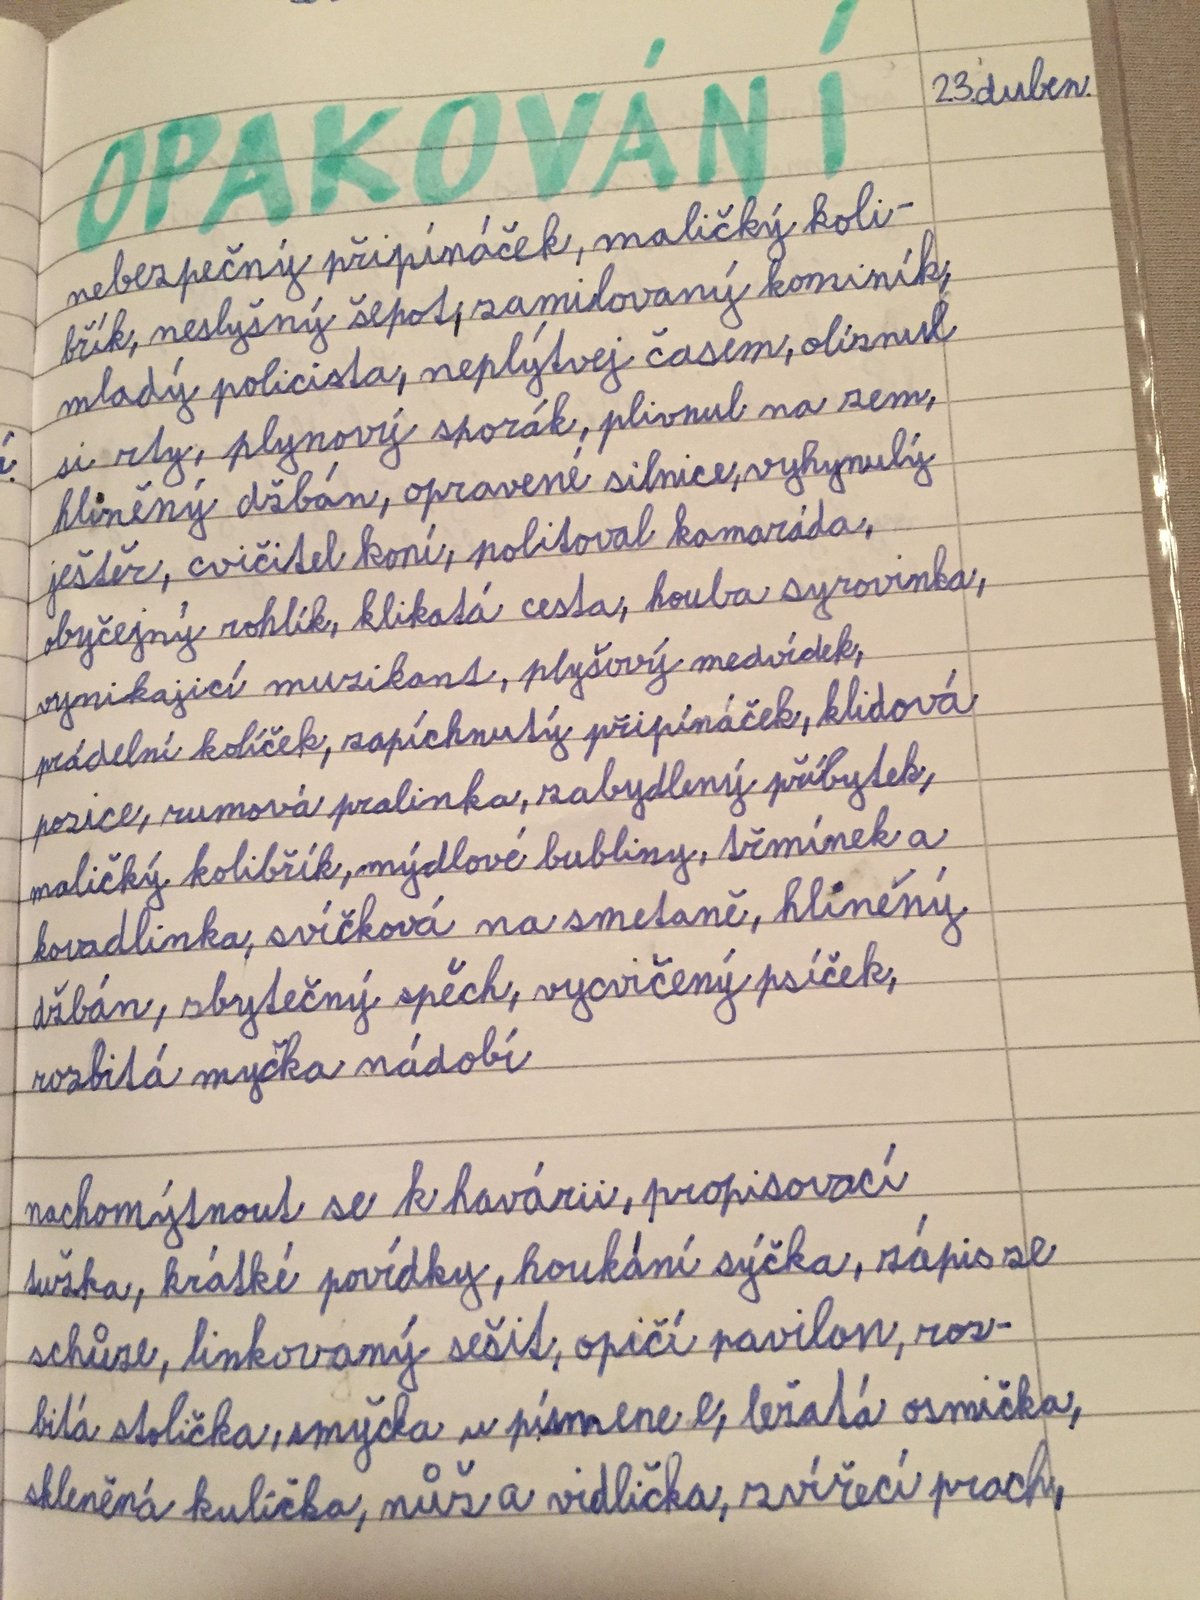 23. duben
OPAKOVÁNÍ
nebezpečný připínáček, maličký koli-
břík, neslyšný šepot, zamilovaný kominík,
mladý policista, neplýtvej časem, olíznul
si rty, plynový sporák, plivnul na zem,
hliněný džbán, opravené silnice, vyhynulý
ještěr, cvičitel koní, politoval kamaráda,
obyčejný rohlík, klikatá cesta, houba syrovinka,
vynikajicí muzikant, plyšový medvídek,
prádelní kolíček, zapíchnutý připínáček, klidová
pozice, rumová pralinka, zabydlený příbytek,
maličký kolibřík, mýdlové bubliny, třmínek a
kovadlinka, svíčková na smetaně, hliněný
džbán, zbytečný spěch, vycvičený psíček,
rozbitá myčka nádobí
nachomýtnout se k havárii, propisovací
tužka, krátké povídky, houkání sýčka, zápis ze
schůze, linkovaný sešit, opičí pavilon, roz-
bitá stolička, smyčka u písmene e, ležatá osmička,
skleněná kulička, nůž a vidlička, zvířecí prach,